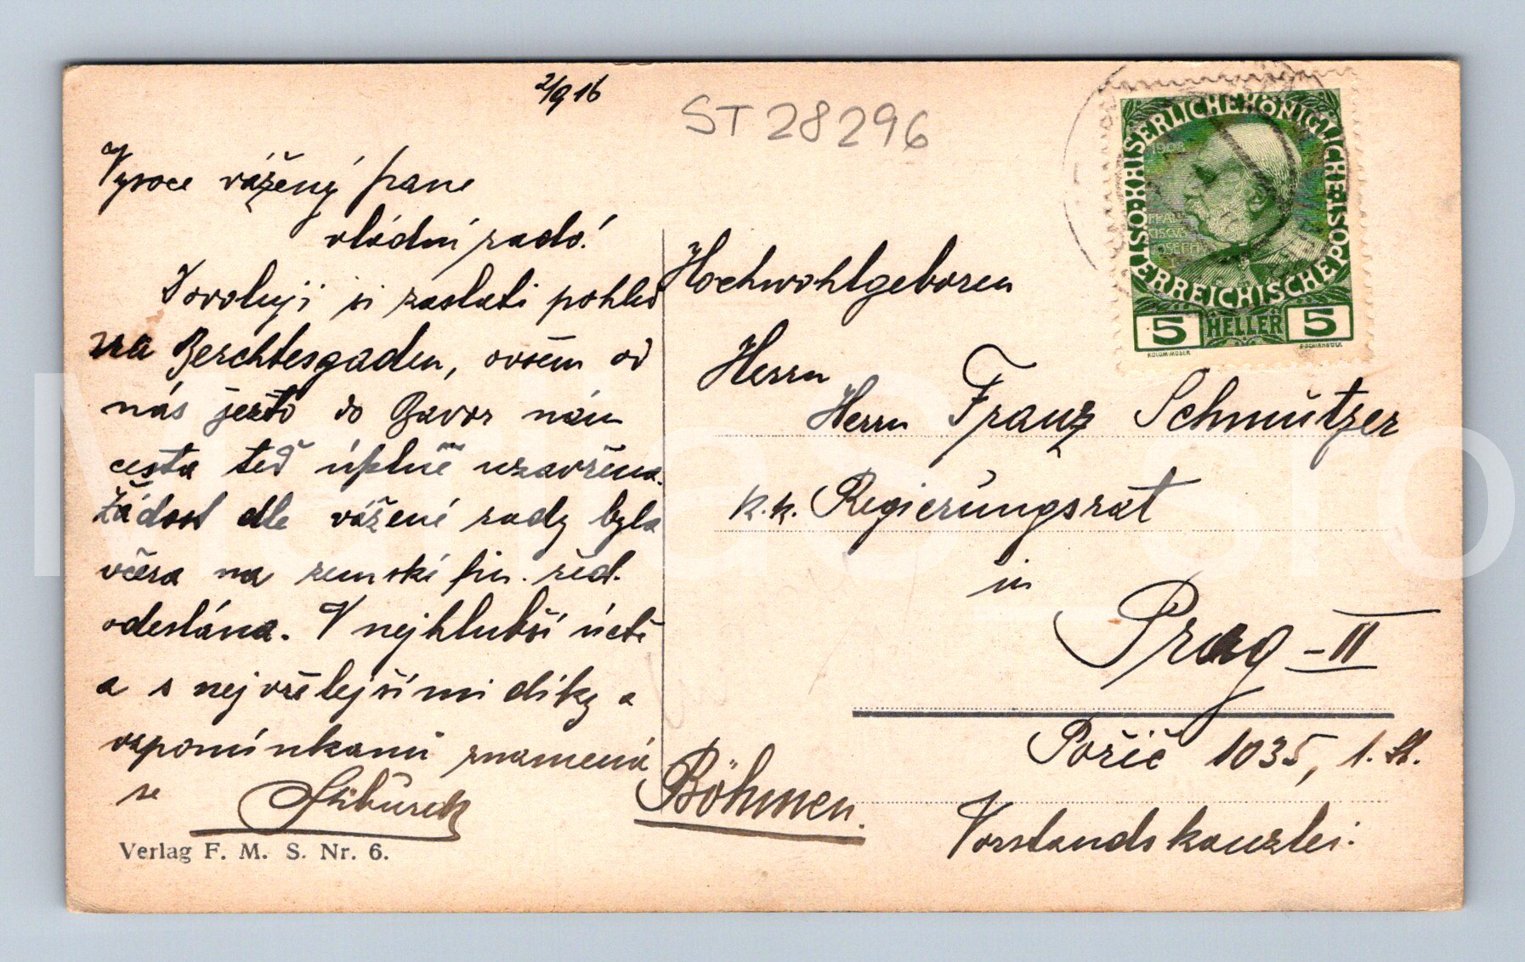 2/9 16
ST 28296
Vysoce vážený pane
vládní rado!
Dovoluji si zaslati pohled
na Berchtesgaden, ovšem od
nás ježto do Bavor nám
cesta teď úplně uzavřena.
Žádost dle vážené rady byla
včera na zemské fin. řed.
odeslána. V nejhlubší úctě
a s nejvřelejšími díky a
vzpomínkami znamená
se
Verlag F. M. S. Nr. 6.
K·K·ISO·KAISERLICHE·KÖNIGLICHE·ISO
ÖSTERREICHISCHE POST
1908
FRANCISCVS JOSEPH I
5 HELLER 5
KOLOM·MOSER
F·SCHIRNBÖCK
Hochwohlgeboren
Herrn
Herrn Franz Schmützer
k.k. Regierungsrat
in
Prag - II
Pořič 1035, 1. St.
Böhmen.
Vorstandskanzlei.